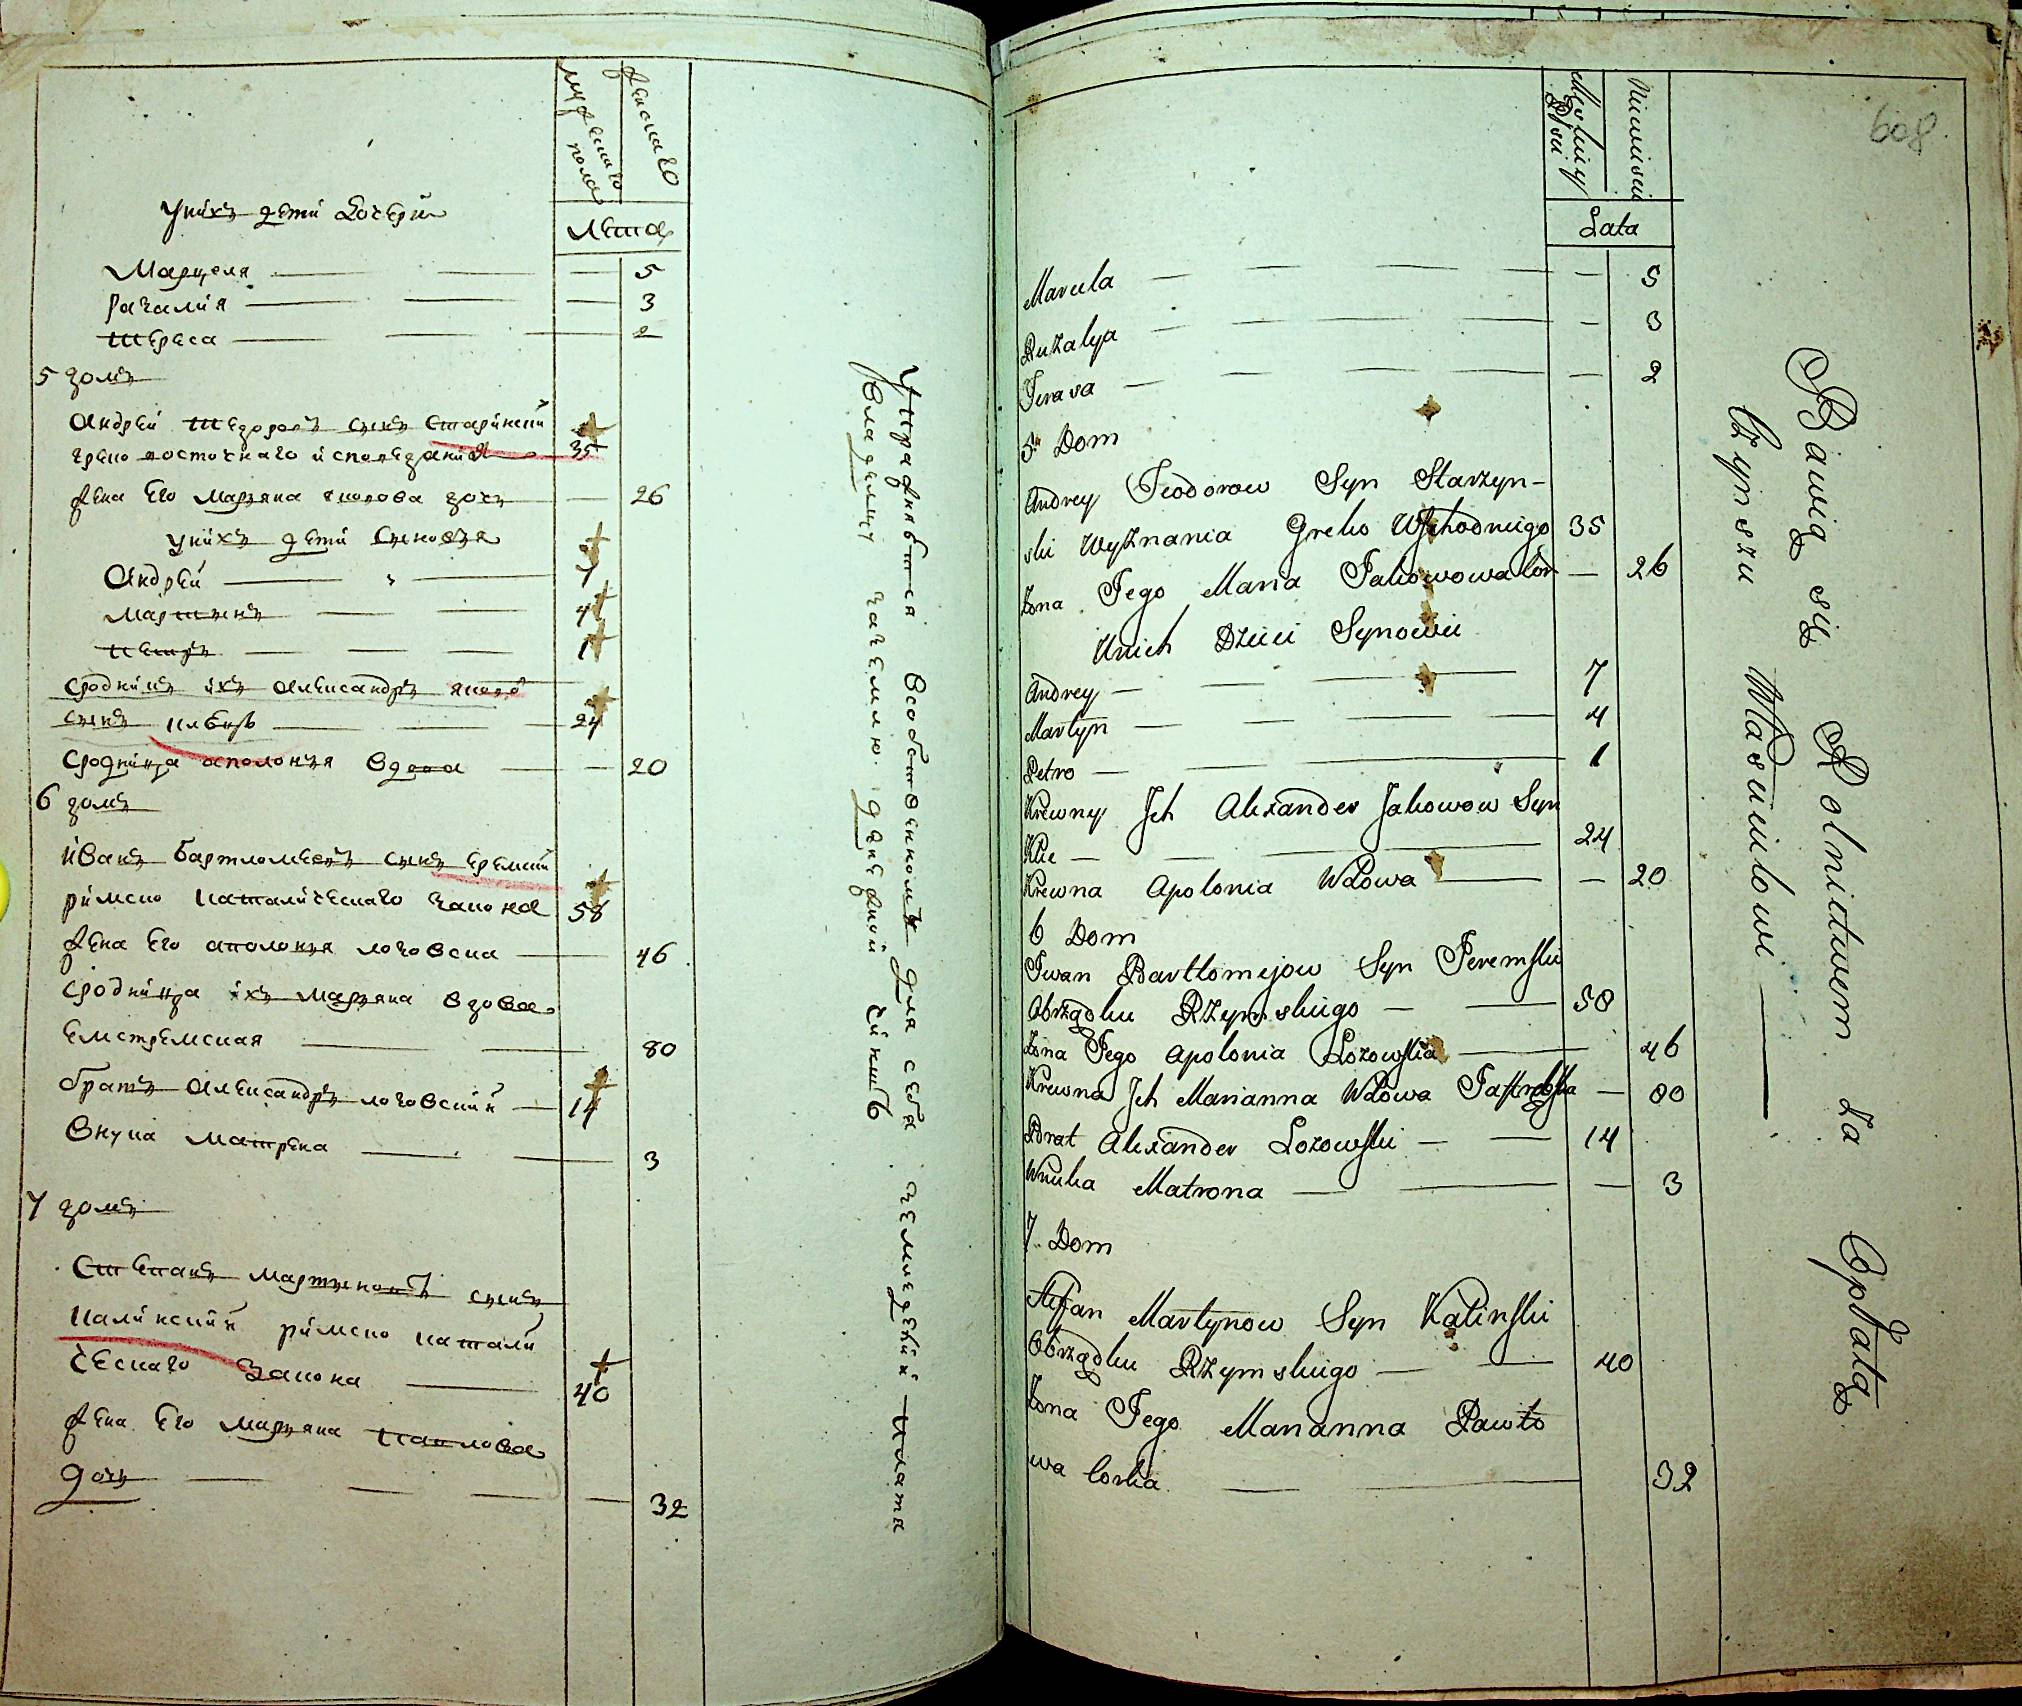 мужеска го пола
женска го
Лета
У нихъ дети дочери
Марцеля — 5
Рагалия — 3
Тереса — 2
5 домъ
Андрей Теодоровъ сынъ Старинский
греко восточнаго исповедания 35
Жена Его Марьяна якова дочь — 26
У нихъ дети Сыновья
Андрей 7
Мартынъ 4
Петръ 1
Сродникъ ихъ Александръ яково
сынъ 24
Сродница аполонья вдова — 20
6 домъ
Иванъ Бартломеевъ сынъ Еремский
римско Католическаго закона 58
Жена Его аполонья лозовска 46
Сродница ихъ Марьяна вдова
80
братъ Александръ лозовский — 14
Внука Матрена 3
7 домъ
Степанъ Мартыновъ сынъ
Калинский римско катали
ческаго Закона 40
Жена Его Марьяна Павлова
дочь — 32
Упражняются В собственномъ для себя земледелии плата
Владелцу за землю денежной чиншъ
608.
Męskiey Płci
Niewieściey
Lata
Marcela — 5
Ruzalya — 3
Teresa — 2
5. Dom
Andrey Teodorow Syn Starzyn-
ski Wyznania Greko Wschodniego 35
Żona Jego Maria Jakowowa Cór — 26
U nich Dzieci Synowie
Andrey — 7
Martyn — 4
Petro — 1
Krewny Ich Alexander Jakowow Syn
24
Krewna Apolonia Wdowa — 20
6 Dom
Iwan Bartłomejow Syn Jeremski
Obrządku Rzymskiego — 58
Żona Jego Apolonia Łozowska 46
Krewna Ich Marianna Wdowa — 80
Brat Alexander Łozowski — 14
Wnuka Matrona — 3
7. Dom
Stefan Martynow Syn Kalinski
Obrządku Rzymskiego — 40
Żona Jego Marianna Pawło
wa Corka 32
Bawią się Rolnictwem za Opłatą
Czynszu Właścicielowi —